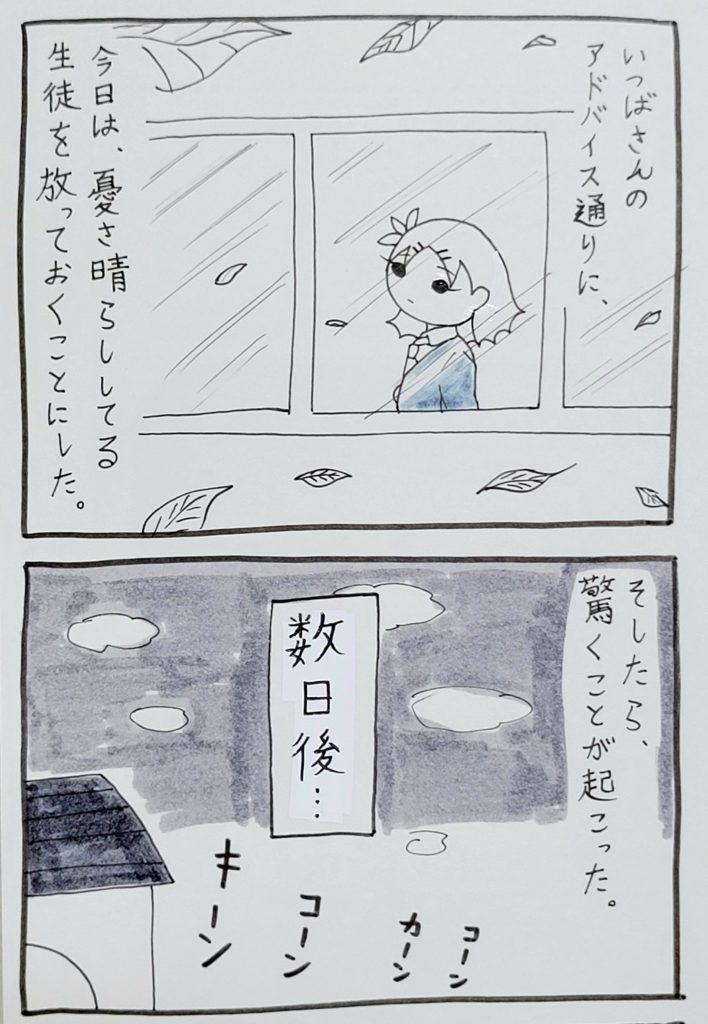 いつばさんの
アドバイス通りに、
今日は、憂さ晴らししてる
生徒を放っておくことにした。
そしたら、
驚くことが起こった。
数日後…
キーン
コーン
カーン
コーン